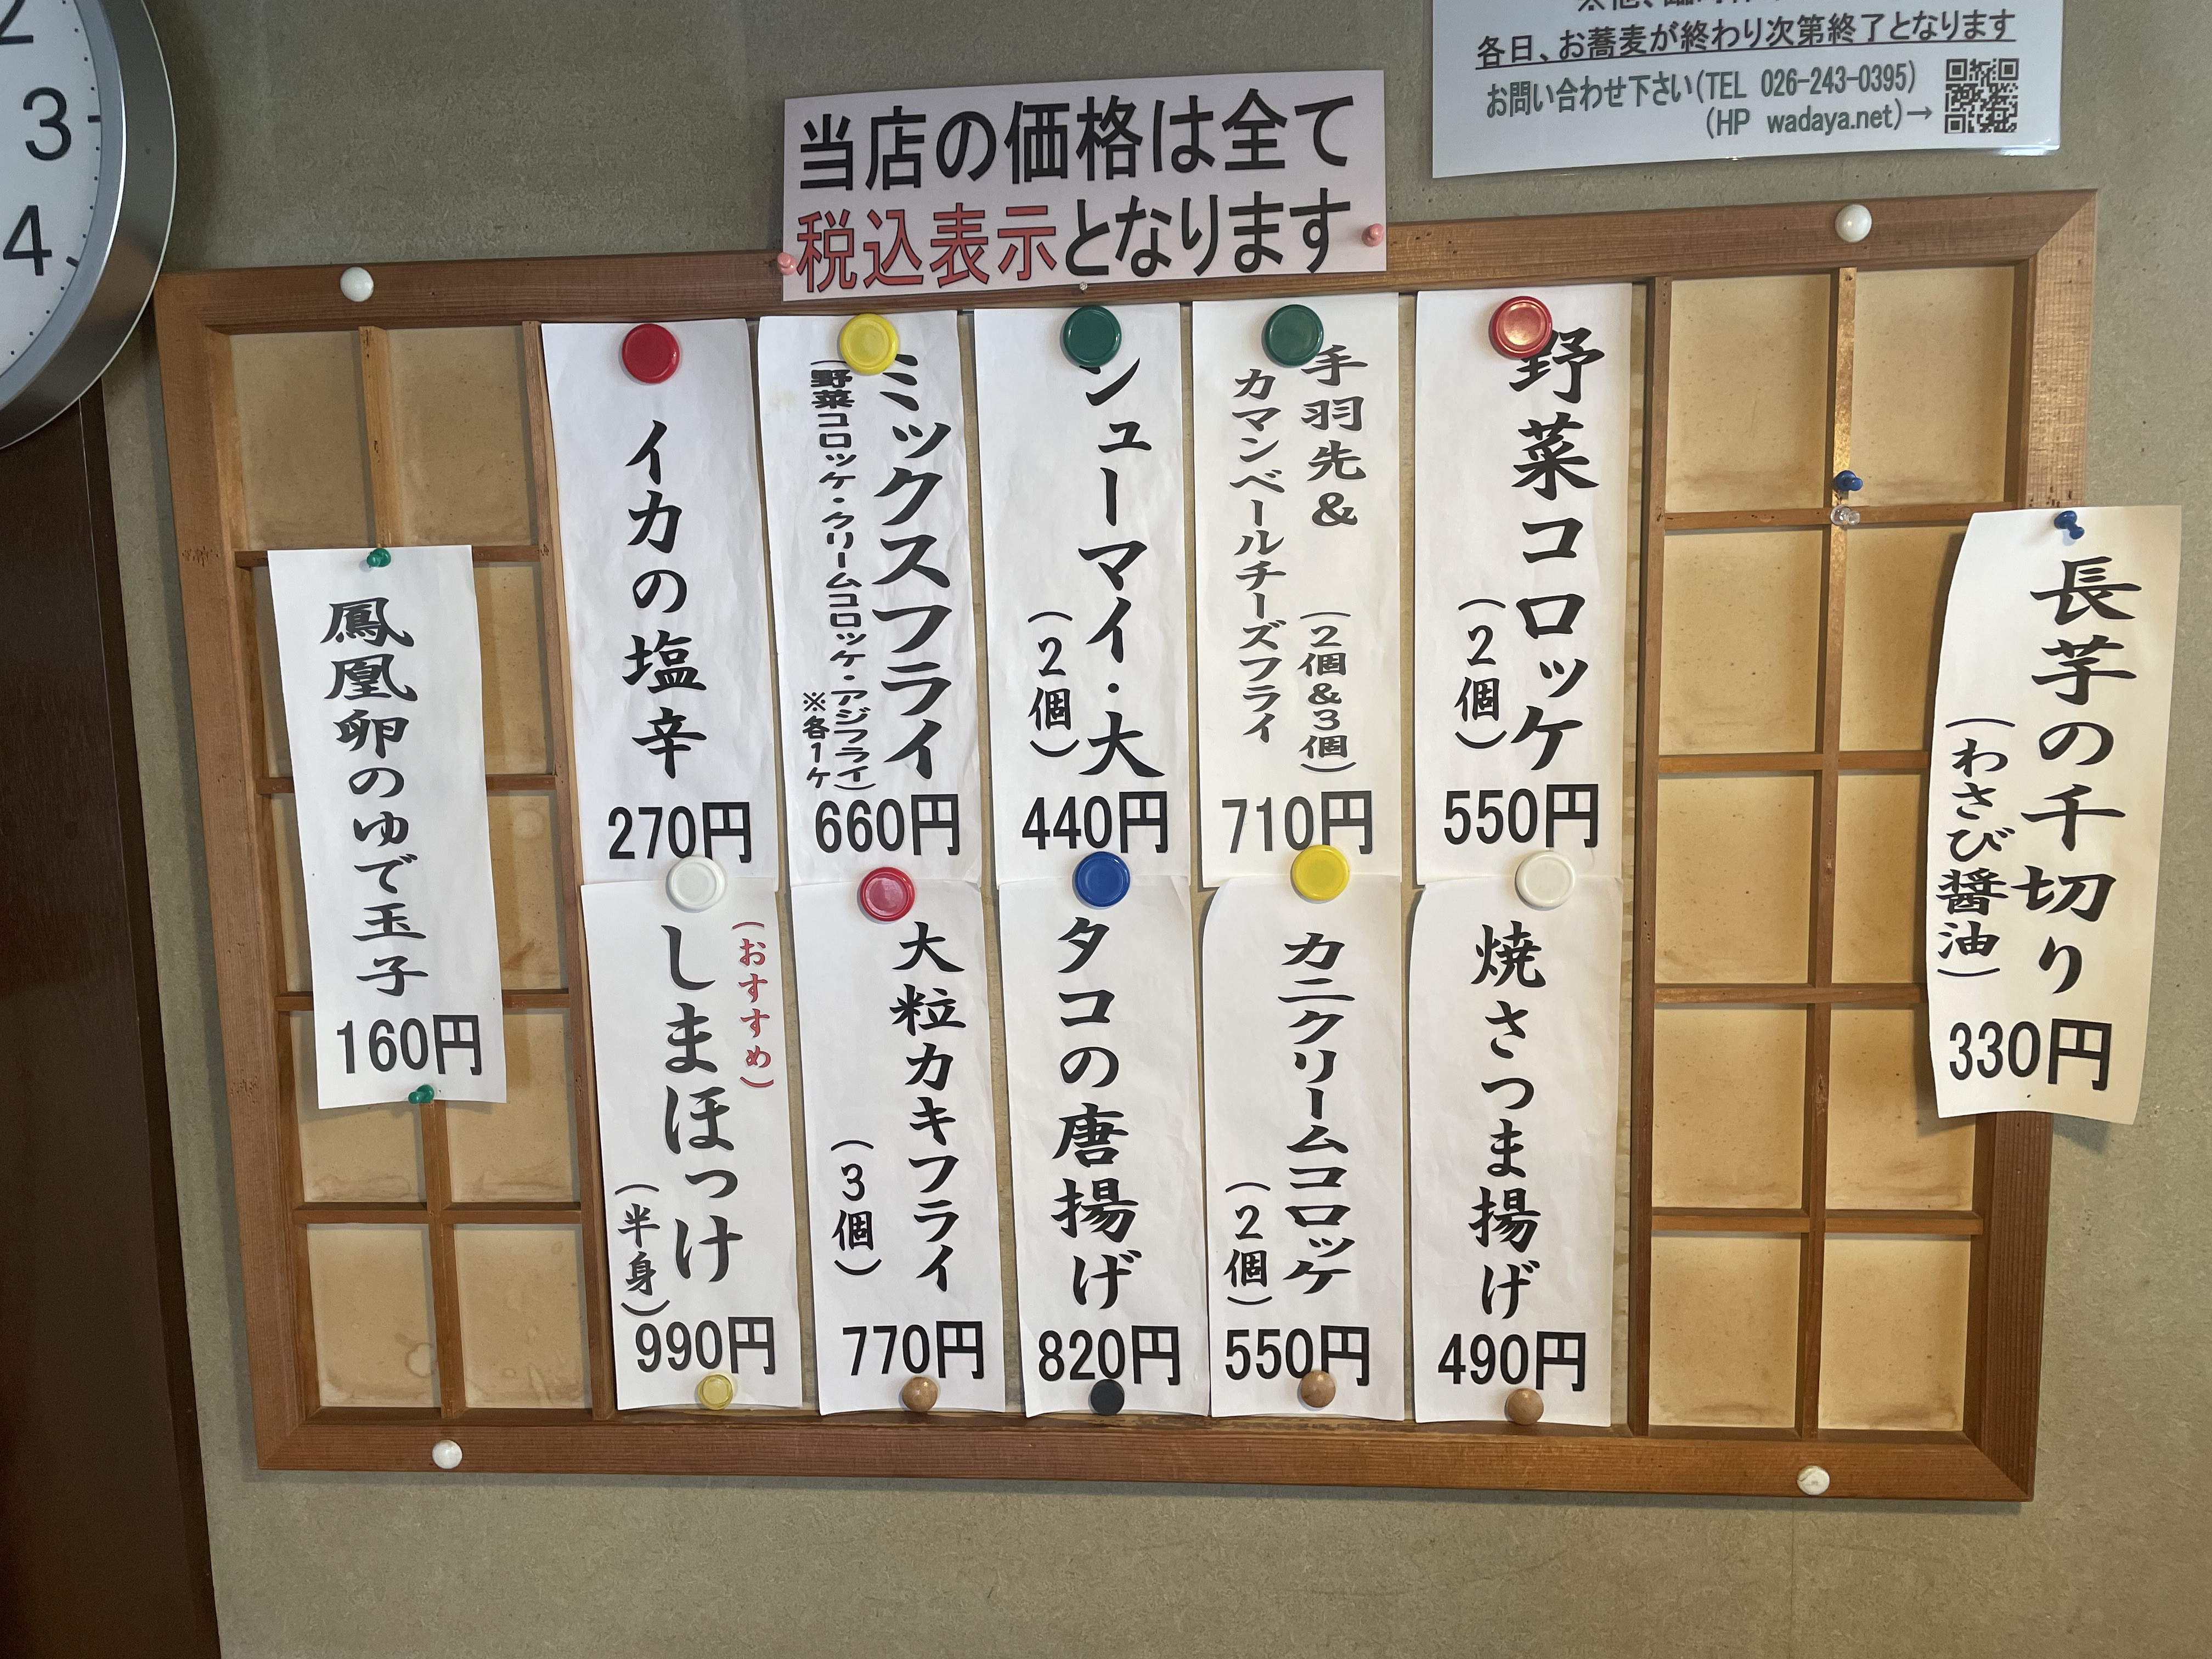 各日、お蕎麦が終わり次第終了となります
お問い合わせ下さい(TEL 026-243-0395)
(HP wadaya.net)→
当店の価格は全て
税込表示となります
2
3
4
長芋の千切り
(わさび醤油)
330円
野菜コロッケ
(2個)
550円
手羽先&
(2個&3個)
カマンベールチーズフライ
710円
シューマイ・大
(2個)
440円
ミックスフライ
(野菜コロッケ・クリームコロッケ・アジフライ)
※各1ケ
660円
イカの塩辛
270円
焼さつま揚げ
490円
カニクリームコロッケ
(2個)
550円
タコの唐揚げ
820円
大粒カキフライ
(3個)
770円
(おすすめ)
しまほっけ
(半身)
990円
鳳凰卵のゆで玉子
160円